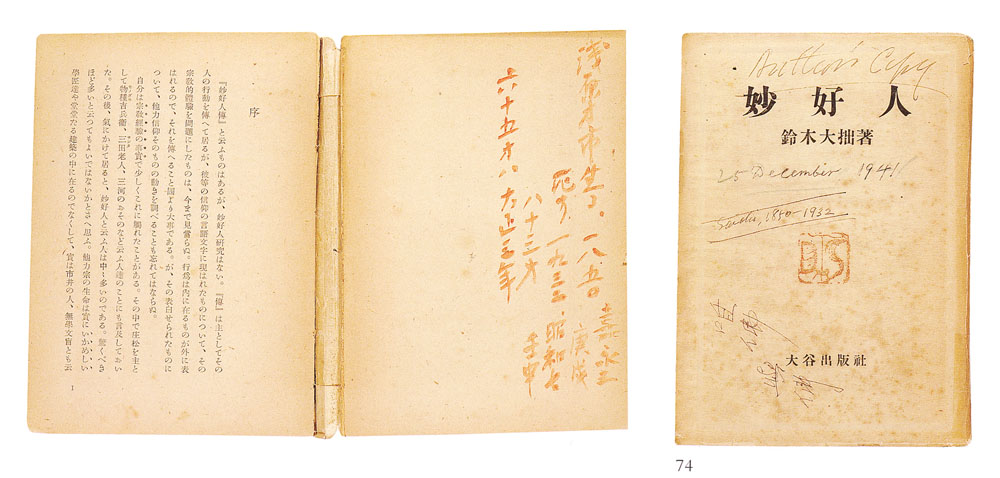 浅原才市生る、一八五〇 嘉永三
庚戌
一九三二 昭和七
壬申
八十三才
六十五才ハ 大正三年
序
『妙好人傳』と云ふものはあるが、妙好人研究はない。『傳』は主としてその
人の行動を傳へて居るが、彼等の信仰の言語文字に現はれたものについて、その
宗教的體驗を問題にしたものは、今まで見當らぬ。行爲は内に在るものが外に表
はれるので、それを傳へること固より大事である。が、その表白せられたものに
ついて、他力信仰そのものの動きを調べることも忘れてはならぬ。
自分は宗教經驗の事實で少しくこれに觸れたことがある。その中で庄松を主と
して物種吉兵衞、三田老人、三河のおそのなど云ふ人達のことにも言及しておい
た。その後、氣にかけて居ると、妙好人と云ふ人は中々多いのである。驚くべき
ほど多いと云つてもよいではないかとさへ思ふ。他力宗の生命は實にいかめしい
學匠達や堂堂たる建築の中に在るのでなくして、實は市井の人、無學文盲とも云
1
Author's Copy
妙好人
鈴木大拙著
25 December 1941
1850-1932
大谷出版社
74